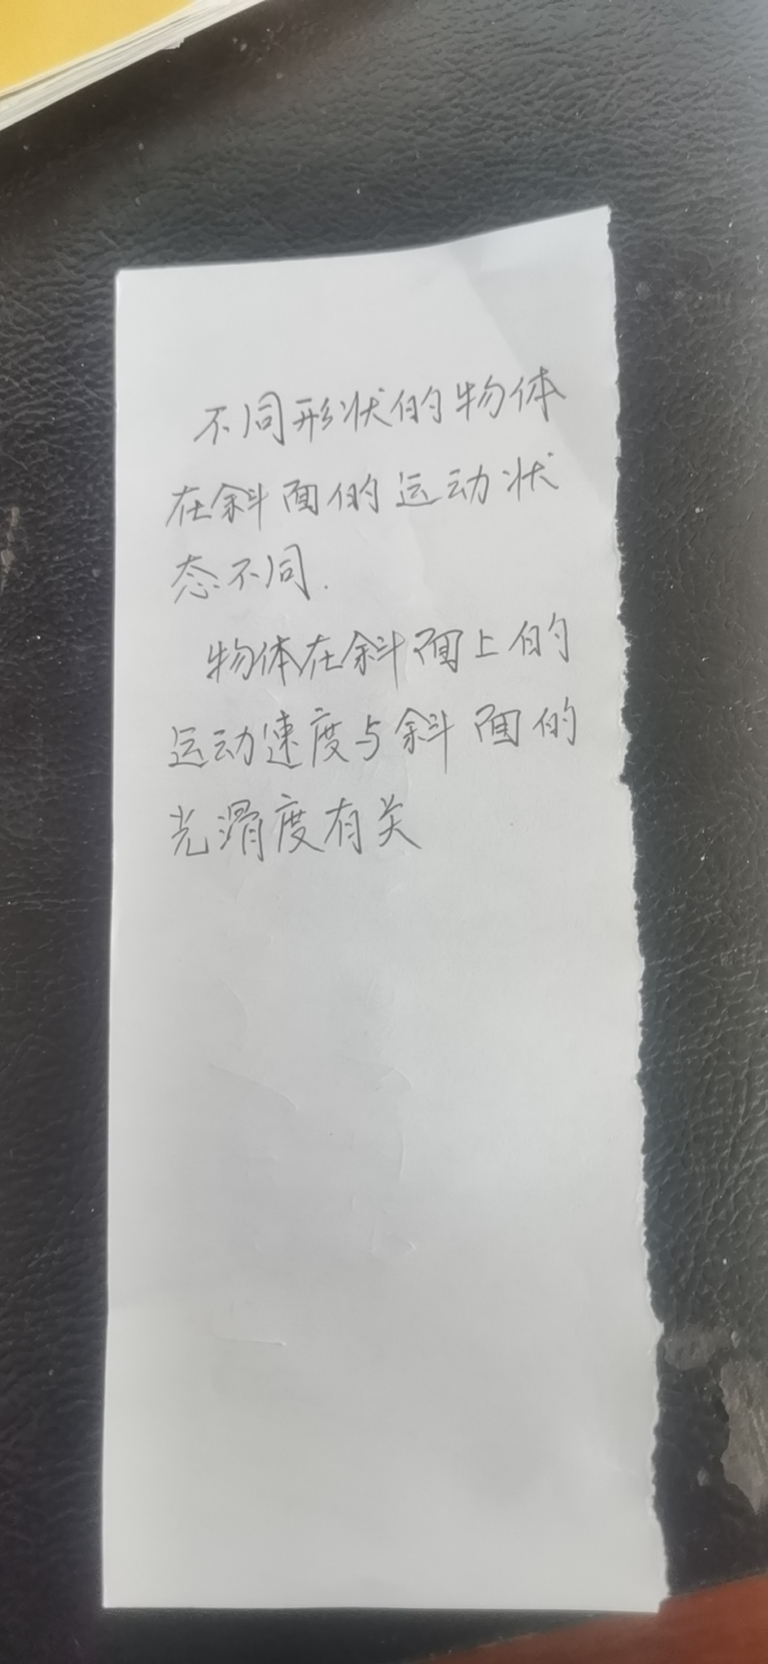 不同形状的物体
在斜面的运动状
态不同.
物体在斜面上的
运动速度与斜面的
光滑度有关